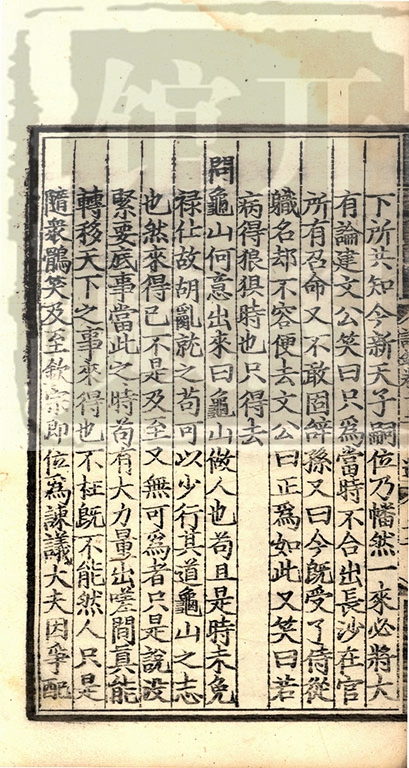 下所共知今新天子嗣位乃幡然一來必將大
有論建文公笑曰只為當時不合出長沙在官
所有召命又不敢固辭孫又曰今既受了侍從
職名却不容便去文公曰正為如此又笑曰若
病得狼狽時也只得去
問龜山何意出來曰龜山做人也苟且是時未免
祿仕故胡亂就之苟可以少行其道龜山之志
也然來得已不是及至又無可為者只是說沒
緊要底事當此之時苟有大力量出嗟間真能
轉移天下之事來得也不枉既不能然人只是
隨衆鶻突及至欽宗即位為諫議大夫因爭配